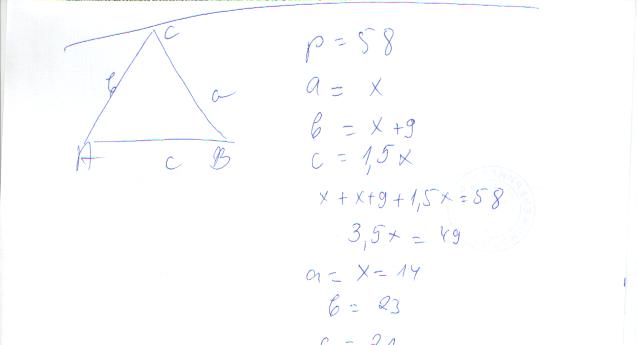 C
b
a
A
c
B
p = 58
a = x
b = x+9
c = 1,5x
x + x+9 + 1,5x = 58
3,5x = 49
a = x = 14
b = 23
c = 21